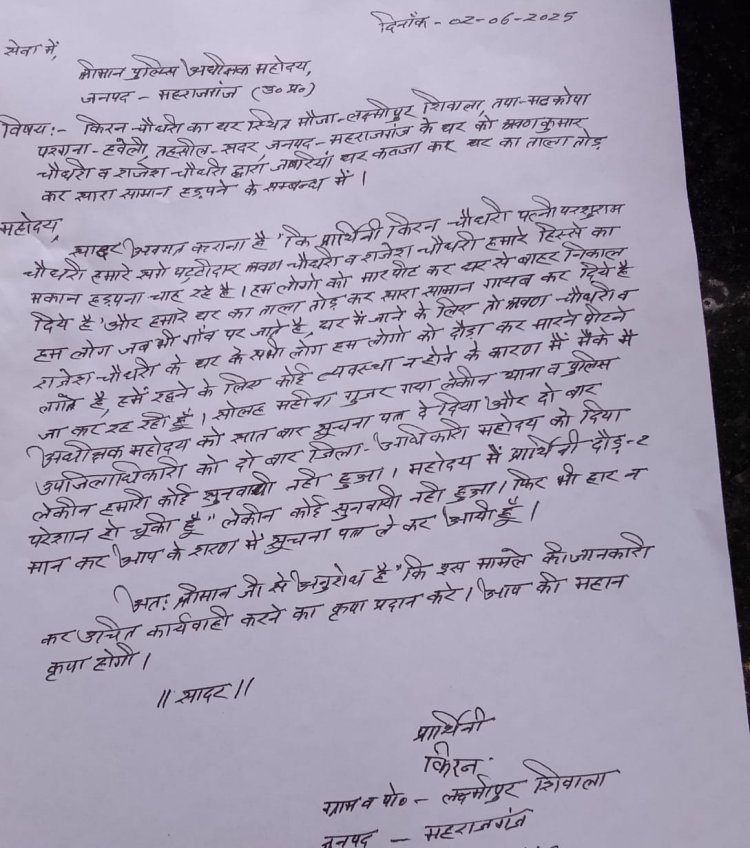 दिनाँक - 02-06-2025
सेवा में,
श्रीमान पुलिस अधीक्षक महोदय,
जनपद - महराजगंज (उ० प्र०)
विषय:- किरन चौधरी का घर स्थित मौजा-लक्ष्मीपुर शिवाला, तपा-भटकोपा
परगना-हवेली, तहसील-सदर, जनपद-महराजगंज के घर को श्रवण कुमार
चौधरी व राजेश चौधरी द्वारा जबरिया घर कब्जा कर घर का ताला तोड़
कर सारा सामान हड़पने के सम्बन्ध में।
महोदय,
सादर अवगत कराना है "कि प्रार्थिनी किरन चौधरी पत्नी परशुराम
चौधरी हमारे सगे पट्टीदार श्रवण चौधरी व राजेश चौधरी हमारे हिस्से का
मकान हड़पना चाह रहे है। हम लोगो को मारपीट कर घर से बाहर निकाल
दिये है और हमारे घर का ताला तोड़ कर सारा सामान गायब कर दिये है
हम लोग जब भी गाँव पर जाते है, घर में जाने के लिए तो श्रवण चौधरी व
राजेश चौधरी के घर के सभी लोग हम लोगो को दौड़ा कर मारने पीटने
लगते है, हमें रहने के लिए कोई व्यवस्था न होने के कारण मैं मैके में
जा कर रह रही हूँ। सोलह महीना गुजर गया लेकीन थाना व पुलिस
अधीक्षक महोदय को सात बार सूचना पत्र दे दिया और दो बार
उपजिलाधिकारी को दो बार जिला-अधिकारी महोदय को दिया
लेकीन हमारी कोई सुनवायी नही हुआ। महोदय मैं प्रार्थिनी दौड़-२
परेशान हो चूकी हूँ" लेकीन कोई सुनवायी नही हुआ। फिर भी हार न
मान कर आप के शरण में सूचना पत्र ले कर आयी हूँ।
अत: श्रीमान जी से अनुरोध है "कि इस मामले की जानकारी
कर उचित कार्यवाही करने का कृपा प्रदान करे। आप की महान
कृपा होगी।
॥ सादर ॥
प्रार्थिनी
किरन
ग्राम व पो० - लक्ष्मीपुर शिवाला
जनपद - महराजगंज